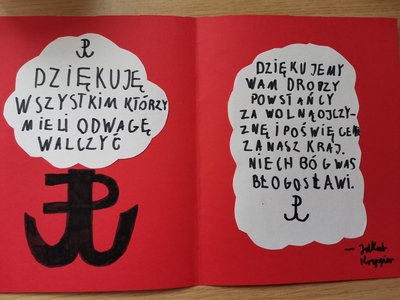 DZIĘKUJĘ
WSZYSTKIM KTÓRZY
MIELI ODWAGĘ
WALCZYĆ
DZIĘKUJEMY
WAM DRODZY
POWSTAŃCY
ZA WOLNĄ OJCZY-
ZNĘ I POŚWIĘCENIE
ZA NASZ KRAJ.
NIECH BÓG WAS
BŁOGOSŁAWI.